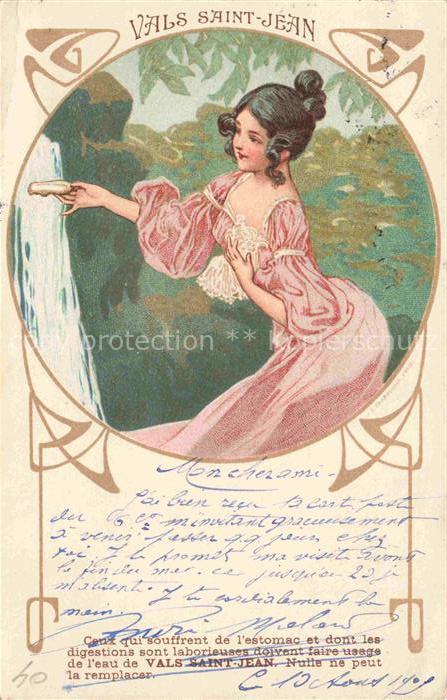 VALS SAINT-JEAN
copy protection ** Kopierschutz
Mon cher ami -
J'ai bien reçu ta cart post
du 6 ct m'invitant gracieusement
à venir passer q.q jours chez
toi. Je te promet ma visite avant
la fin du mois. ce jusqu'au 20 je
m'absent. Je te cordialement la
main.
Ceux qui souffrent de l'estomac et dont les
digestions sont laborieuses doivent faire usage
de l'eau de VALS SAINT-JEAN. Nulle ne peut
la remplacer.
Ce 13 Août
40